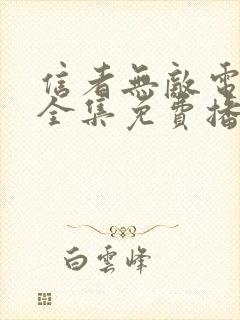 信者無敵電
全集免費播
白雲峰